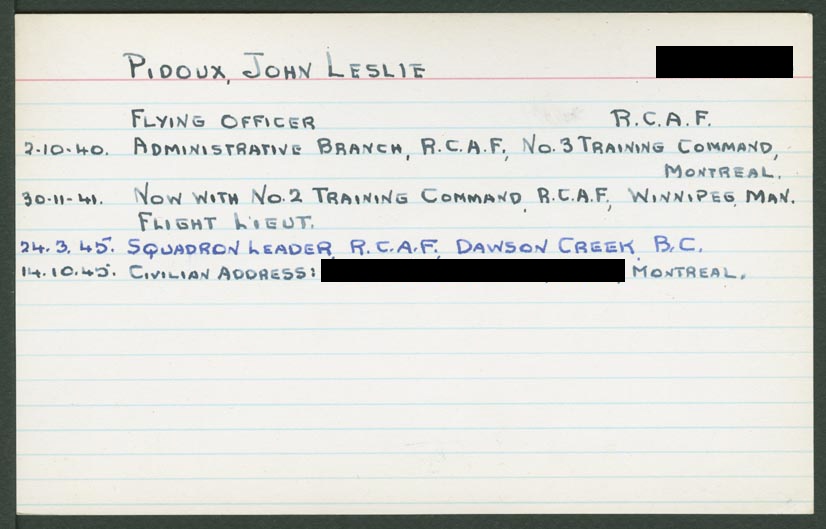 PIDOUX, JOHN LESLIE
FLYING OFFICER R.C.A.F.
2-10-40. ADMINISTRATIVE BRANCH, R.C.A.F., NO. 3 TRAINING COMMAND,
MONTREAL.
30-11-41. NOW WITH NO. 2 TRAINING COMMAND, R.C.A.F., WINNIPEG, MAN.
FLIGHT LIEUT.
24.3.45. SQUADRON LEADER, R.C.A.F., DAWSON CREEK, B.C.
14.10.45. CIVILIAN ADDRESS: MONTREAL.